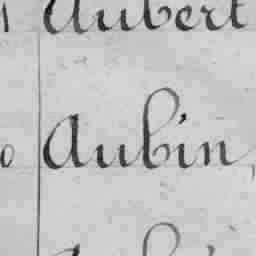 Aubert
Aubin,